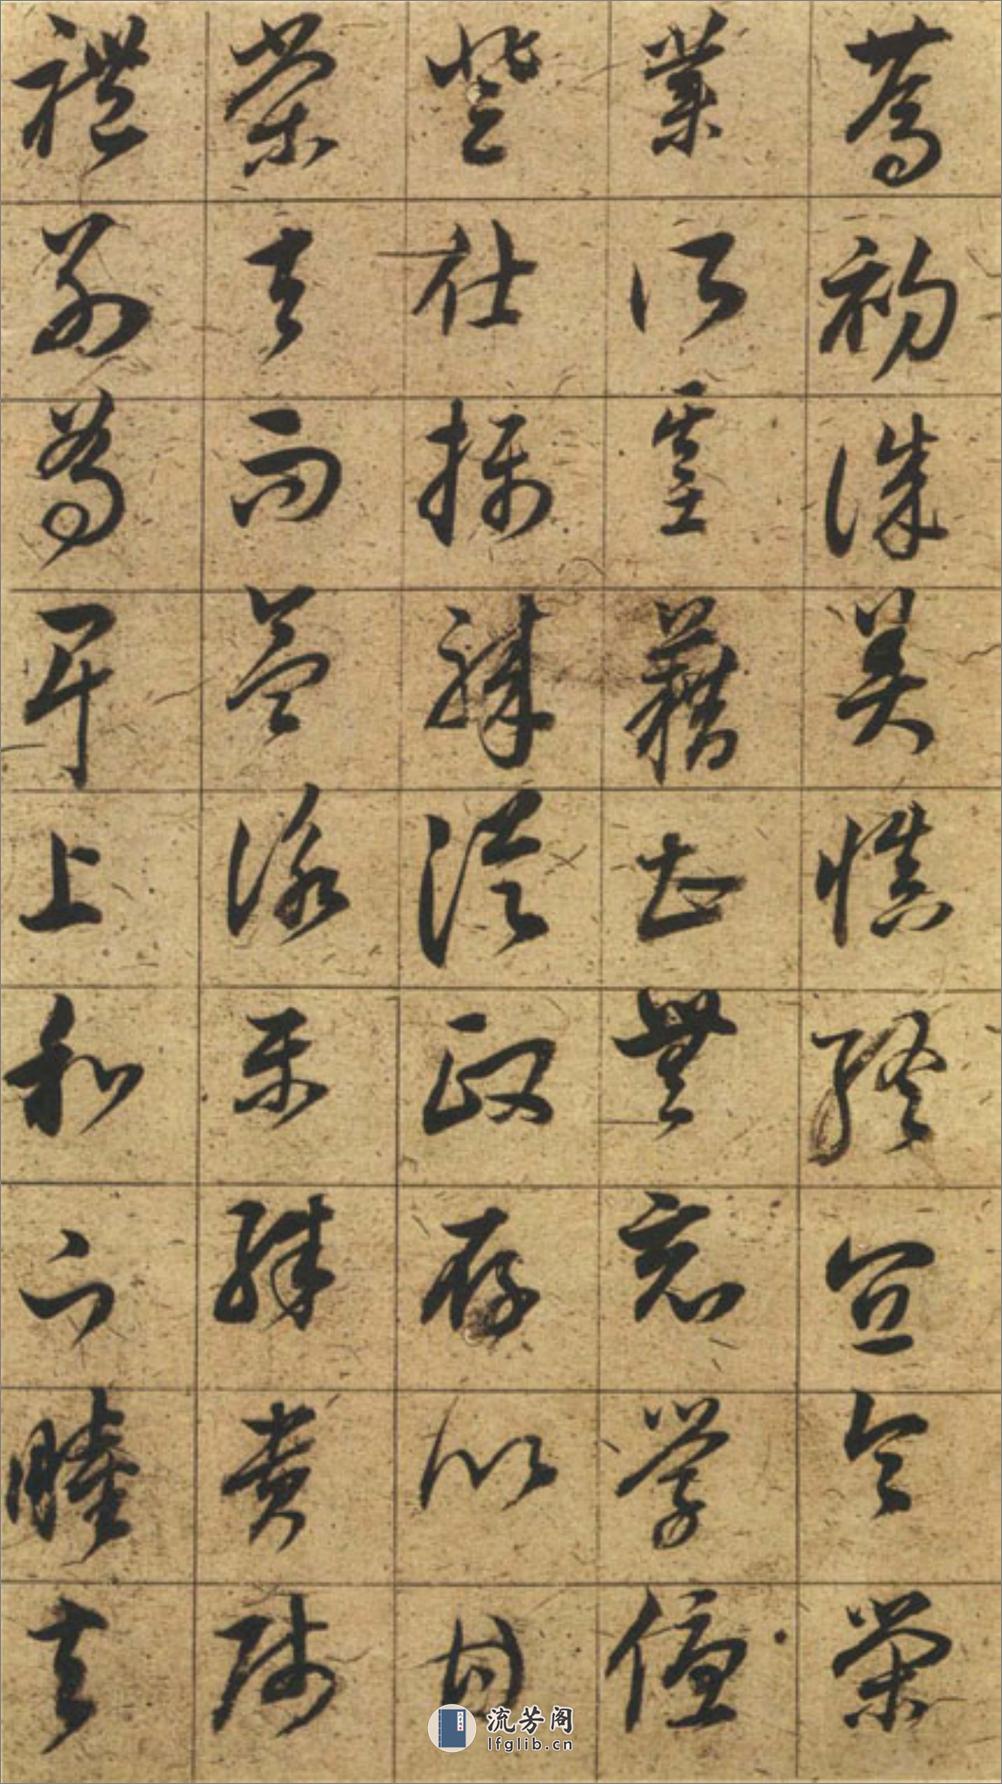 篤初誠美慎終宜令榮
業所基藉甚無竟學優
登仕攝職從政存以甘
棠去而益詠樂殊貴賤
禮別尊卑上和下睦夫
流芳阁
lfglib.cn